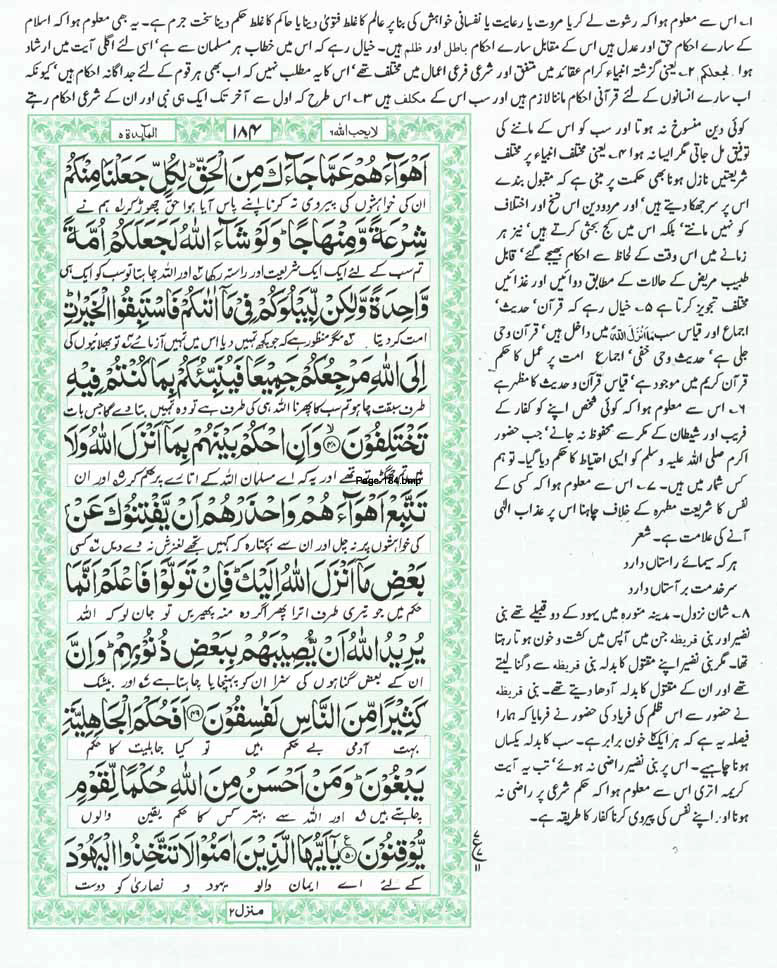 ۱۔ اس سے معلوم ہوا کہ رشوت لے کر یا مروت یا رعایت یا نفسانی خواہش کی بنا پر عالم کا غلط فتویٰ دینا یا حاکم کا غلط حکم دینا سخت جرم ہے۔ یہ بھی معلوم ہوا کہ اسلام
کے سارے احکام حق اور عدل ہیں اس کے مقابل سارے احکام باطل اور ظلم ہیں۔ خیال رہے کہ اس میں خطاب ہر مسلمان سے ہے' اسی لئے اگلی آیت میں ارشاد
ہوا لجعلکم ۲۔ یعنی گزشتہ انبیاء کرام عقائد میں متفق اور شرعی فرعی اعمال میں مختلف تھے' اس کا یہ مطلب نہیں کہ اب بھی ہر قوم کے لئے جداگانہ احکام ہیں' کیونکہ
اب سارے انسانوں کے لئے قرآنی احکام ماننا لازم ہیں اور سب اس کے مکلف ہیں ۳۔ اس طرح کہ اول سے آخر تک ایک ہی نبی اور ان کے شرعی احکام رہتے
کوئی دین منسوخ نہ ہوتا اور سب کو اس کے ماننے کی
توفیق مل جاتی مگر ایسا نہ ہوا ۴۔ یعنی مختلف انبیاء پر مختلف
شریعتیں نازل ہونا بھی حکمت پر مبنی ہے کہ مقبول بندے
اس پر سر جھکا دیتے ہیں' اور مردودین اس نسخ اور اختلاف
کو نہیں مانتے' بلکہ اس میں کج بحثی کرتے ہیں' نیز ہر
زمانے میں اس وقت کے لحاظ سے احکام بھیجے گئے' قابل
طبیب مریض کے حالات کے مطابق دوائیں اور غذائیں
مختلف تجویز کرتا ہے ۵۔ خیال رہے کہ قرآن' حدیث'
اجماع اور قیاس سب مَا اَنْزَلَ اللہُ میں داخل ہیں' قرآن وحی
جلی ہے' حدیث وحی خفی' اجماع امت پر عمل کا حکم
قرآن کریم میں موجود ہے' قیاس قرآن و حدیث کا مظہر ہے
۶۔ اس سے معلوم ہوا کہ کوئی شخص اپنے کو کفار کے
فریب اور شیطان کے مکر سے محفوظ نہ جانے' جب حضور
اکرم صلی اللہ علیہ وسلم کو ایسی احتیاط کا حکم دیا گیا۔ تو ہم
کس شمار میں ہیں۔ ۷۔ اس سے معلوم ہوا کہ کسی کے
نفس کا شریعت مطہرہ کے خلاف چاہنا اس پر عذاب الٰہی
آنے کی علامت ہے۔ شعر
ہر کہ سیمائے راستاں دارد
سر خدمت بر آستاں دارد
۸۔ شان نزول۔ مدینہ منورہ میں یہود کے دو قبیلے تھے بنی
نضیر اور بنی قریظہ جن میں آپس میں کشت و خون ہوتا رہتا
تھا۔ مگر بنی نضیر اپنے مقتول کا بدلہ بنی قریظہ سے دگنا لیتے
تھے اور ان کے مقتول کا بدلہ آدھا دیتے تھے۔ بنی قریظہ
نے حضور سے اس ظلم کی فریاد کی حضور نے فرمایا کہ ہمارا
فیصلہ یہ ہے کہ ہر ایک کا خون برابر ہے۔ سب کا بدلہ یکساں
ہونا چاہیے۔ اس پر بنی نضیر راضی نہ ہوئے' تب یہ آیت
کریمہ اتری اس سے معلوم ہوا کہ حکم شرعی پر راضی نہ
ہونا اور اپنے نفس کی پیروی کرنا کفار کا طریقہ ہے۔
لا یحب اللہ ۶
۱۸۴
المآئدة ۵
اَهْوَآءَهُمْ عَمَّا جَآءَكَ مِنَ الْحَقِّ لِكُلٍّ جَعَلْنَا مِنْكُمْ
ان کی خواہشوں کی پیروی نہ کرنا اپنے پاس آیا ہوا حق چھوڑ کر لہ ہم نے
شِرْعَةً وَّمِنْهَاجًا وَلَوْ شَآءَ اللّٰهُ لَجَعَلَكُمْ اُمَّةً
تم سب کے لئے ایک ایک شریعت اور راستہ رکھا اور اللہ چاہتا تو سب کو ایک ہی
وَّاحِدَةً وَّلٰكِنْ لِّيَبْلُوَكُمْ فِيْ مَآ اٰتٰىكُمْ فَاسْتَبِقُوا الْخَيْرٰتِ
امت کر دیتا مگر منظور یہ ہے کہ جو کچھ تمہیں دیا اس میں تمہیں آزمائے تو بھلائیوں کی
اِلَى اللّٰهِ مَرْجِعُكُمْ جَمِيْعًا فَيُنَبِّئُكُمْ بِمَا كُنْتُمْ فِيْهِ
طرف سبقت چاہو تم سب کا پھرنا اللہ ہی کی طرف ہے تو وہ تمہیں بتا دے گا جس بات
تَخْتَلِفُوْنَ ۴۸ وَاَنِ احْكُمْ بَيْنَهُمْ بِمَآ اَنْزَلَ اللّٰهُ وَلَا
میں تم جھگڑتے تھے اور یہ کہ اے مسلمان اللہ کے اتارے پر حکم کر اور ان
Page-184.bmp
تَتَّبِعْ اَهْوَآءَهُمْ وَاحْذَرْهُمْ اَنْ يَّفْتِنُوْكَ عَنْ
کی خواہشوں پر نہ چل اور ان سے بچتا رہ کہ کہیں تجھے لغزش نہ دے دیں کسی
بَعْضِ مَآ اَنْزَلَ اللّٰهُ اِلَيْكَ فَاِنْ تَوَلَّوْا فَاعْلَمْ اَنَّمَا
حکم میں جو تیری طرف اترا پھر اگر وہ منہ پھیریں تو جان لو کہ اللہ
يُرِيْدُ اللّٰهُ اَنْ يُّصِيْبَهُمْ بِبَعْضِ ذُنُوْبِهِمْ وَاِنَّ
ان کے بعض گناہوں کی سزا ان کو پہنچایا چاہتا ہے اور بیشک
كَثِيْرًا مِّنَ النَّاسِ لَفٰسِقُوْنَ ۴۹ اَفَحُكْمَ الْجَاهِلِيَّةِ
بہت آدمی بے حکم ہیں تو کیا جاہلیت کا حکم
يَبْغُوْنَ وَمَنْ اَحْسَنُ مِنَ اللّٰهِ حُكْمًا لِّقَوْمٍ
چاہتے ہیں اور اللہ سے بہتر کس کا حکم یقین والوں
يُّوْقِنُوْنَ ۵۰ يٰٓاَيُّهَا الَّذِيْنَ اٰمَنُوْا لَا تَتَّخِذُوا الْيَهُوْدَ
کے لئے اے ایمان والو یہود و نصاریٰ کو دوست
منزل ۲